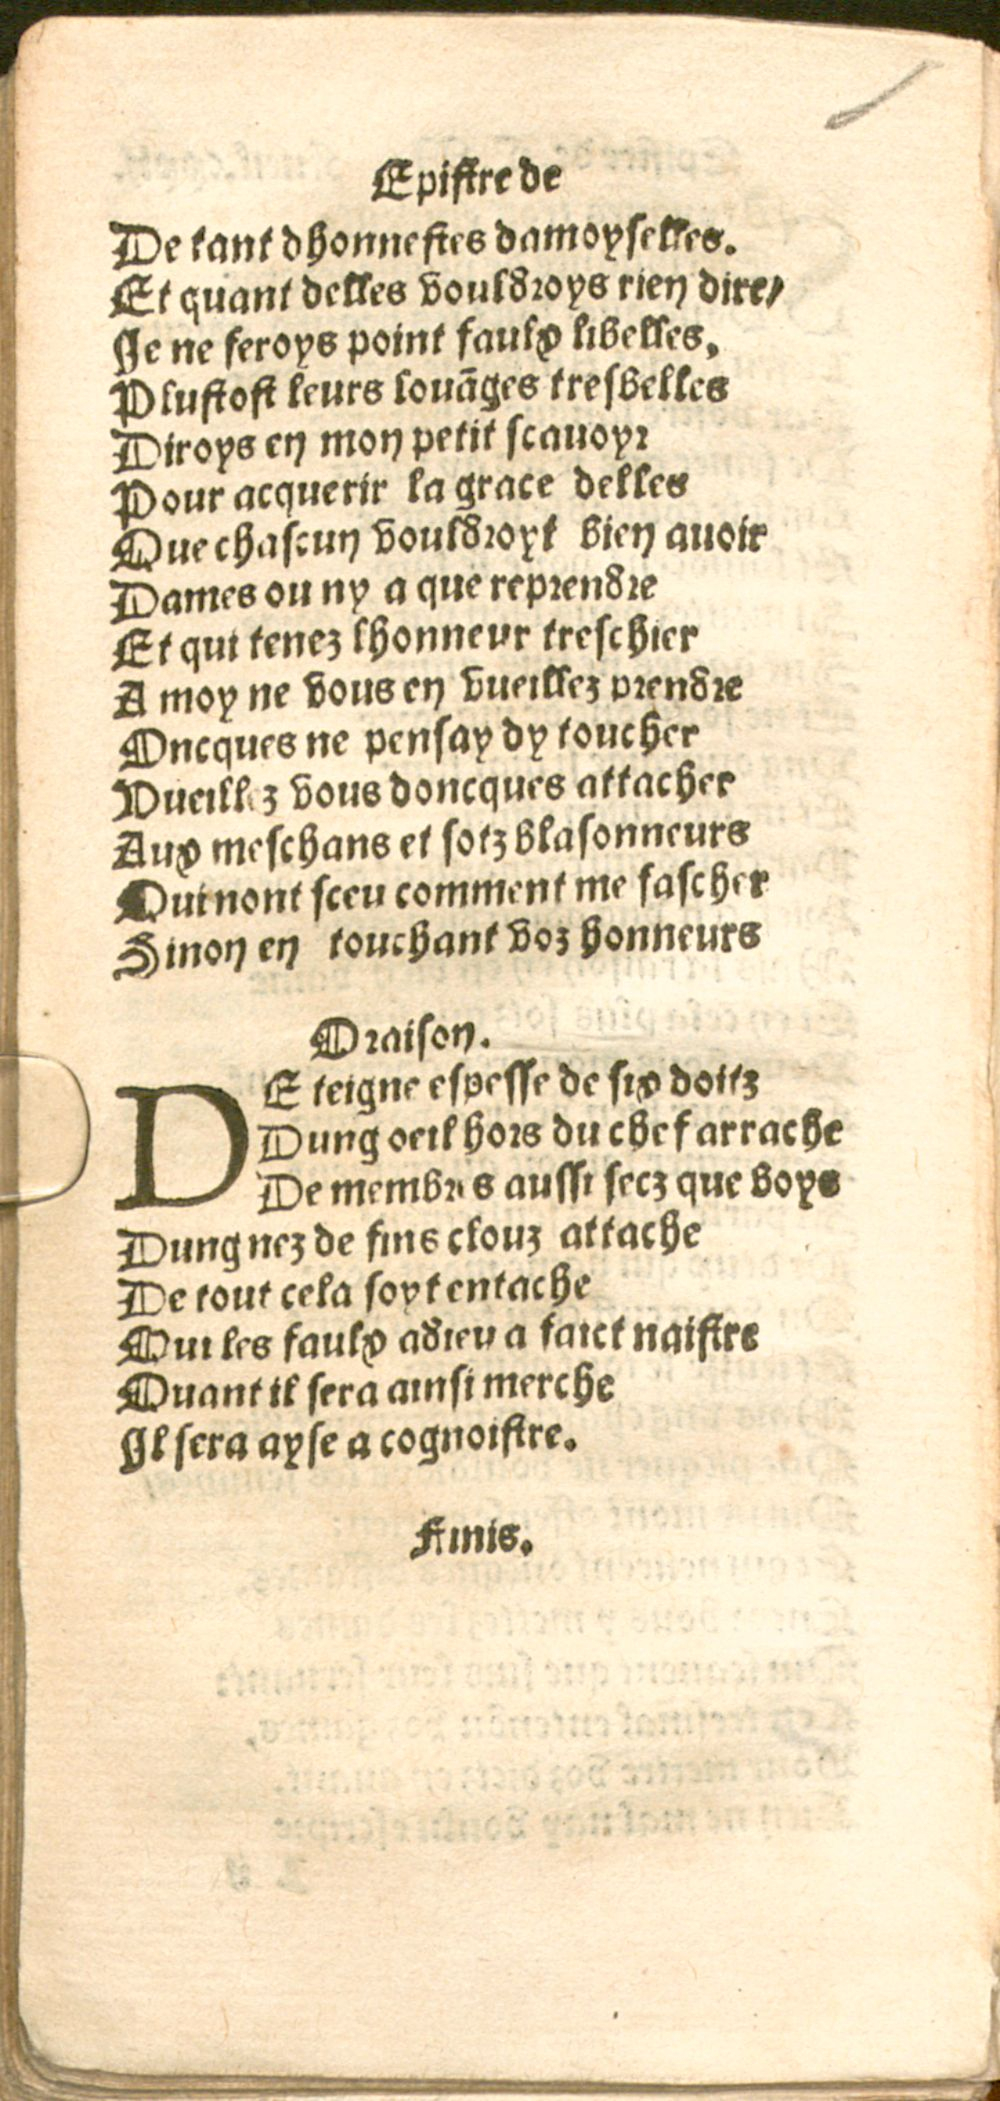 Epistre de
De tant dhonnestes damoyselles.
Et quant delles vouldroys rien dire/
Je ne feroys point faulx libelles.
Plustost leurs louãges tresbelles
Diroys en mon petit scauoyr
Pour acquerir la grace delles
Que chascun vouldroyt bien auoir
Dames ou ny a que reprendre
Et qui tenez lhonneur treschier
A moy ne vous en vueillez prendre
Oncques ne pensay dy toucher
Vueillez vous doncques attacher
Aux meschans et sotz blasonneurs
Qui nont sceu comment me fascher
Sinon en touchant voz honneurs
Oraison.
DE teigne espesse de six doitz
Dung oeil hors du chef arrache
De membres aussi secz que boys
Dung nez de fins clouz attache
De tout cela soyt entache
Qui les faulx adieu a faict naistre
Quant il sera ainsi merche
Il sera ayse a cognoistre.
Finis.